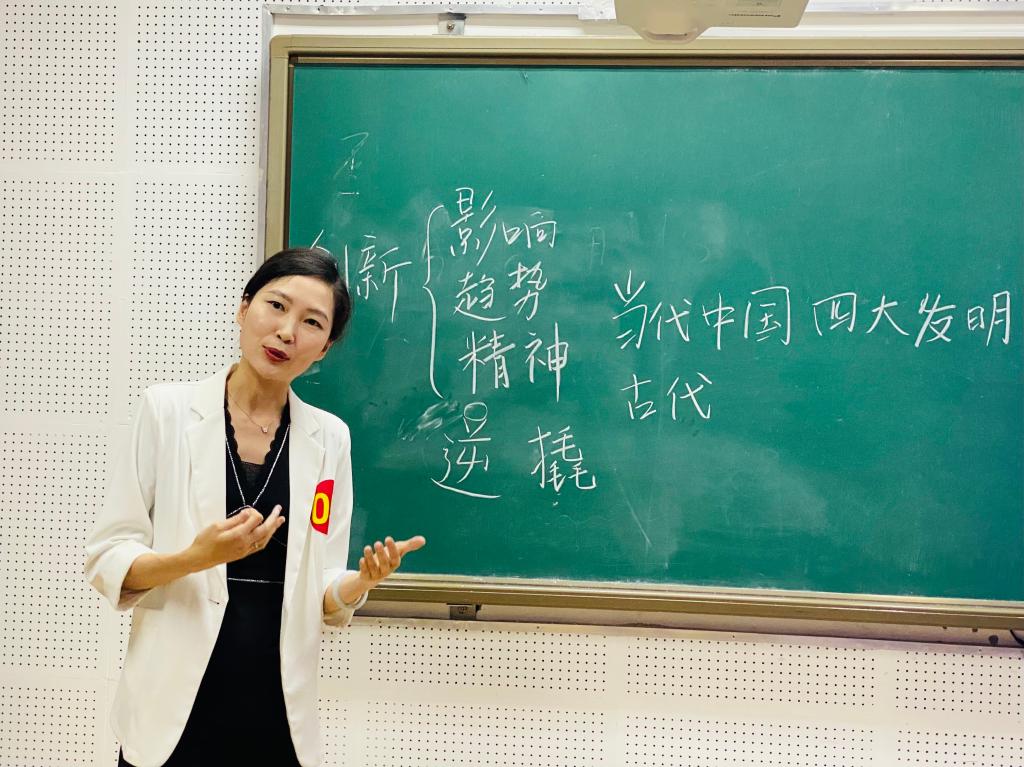 创新
影响
趋势
精神
逆 撬
当代中国 四大发明
古代